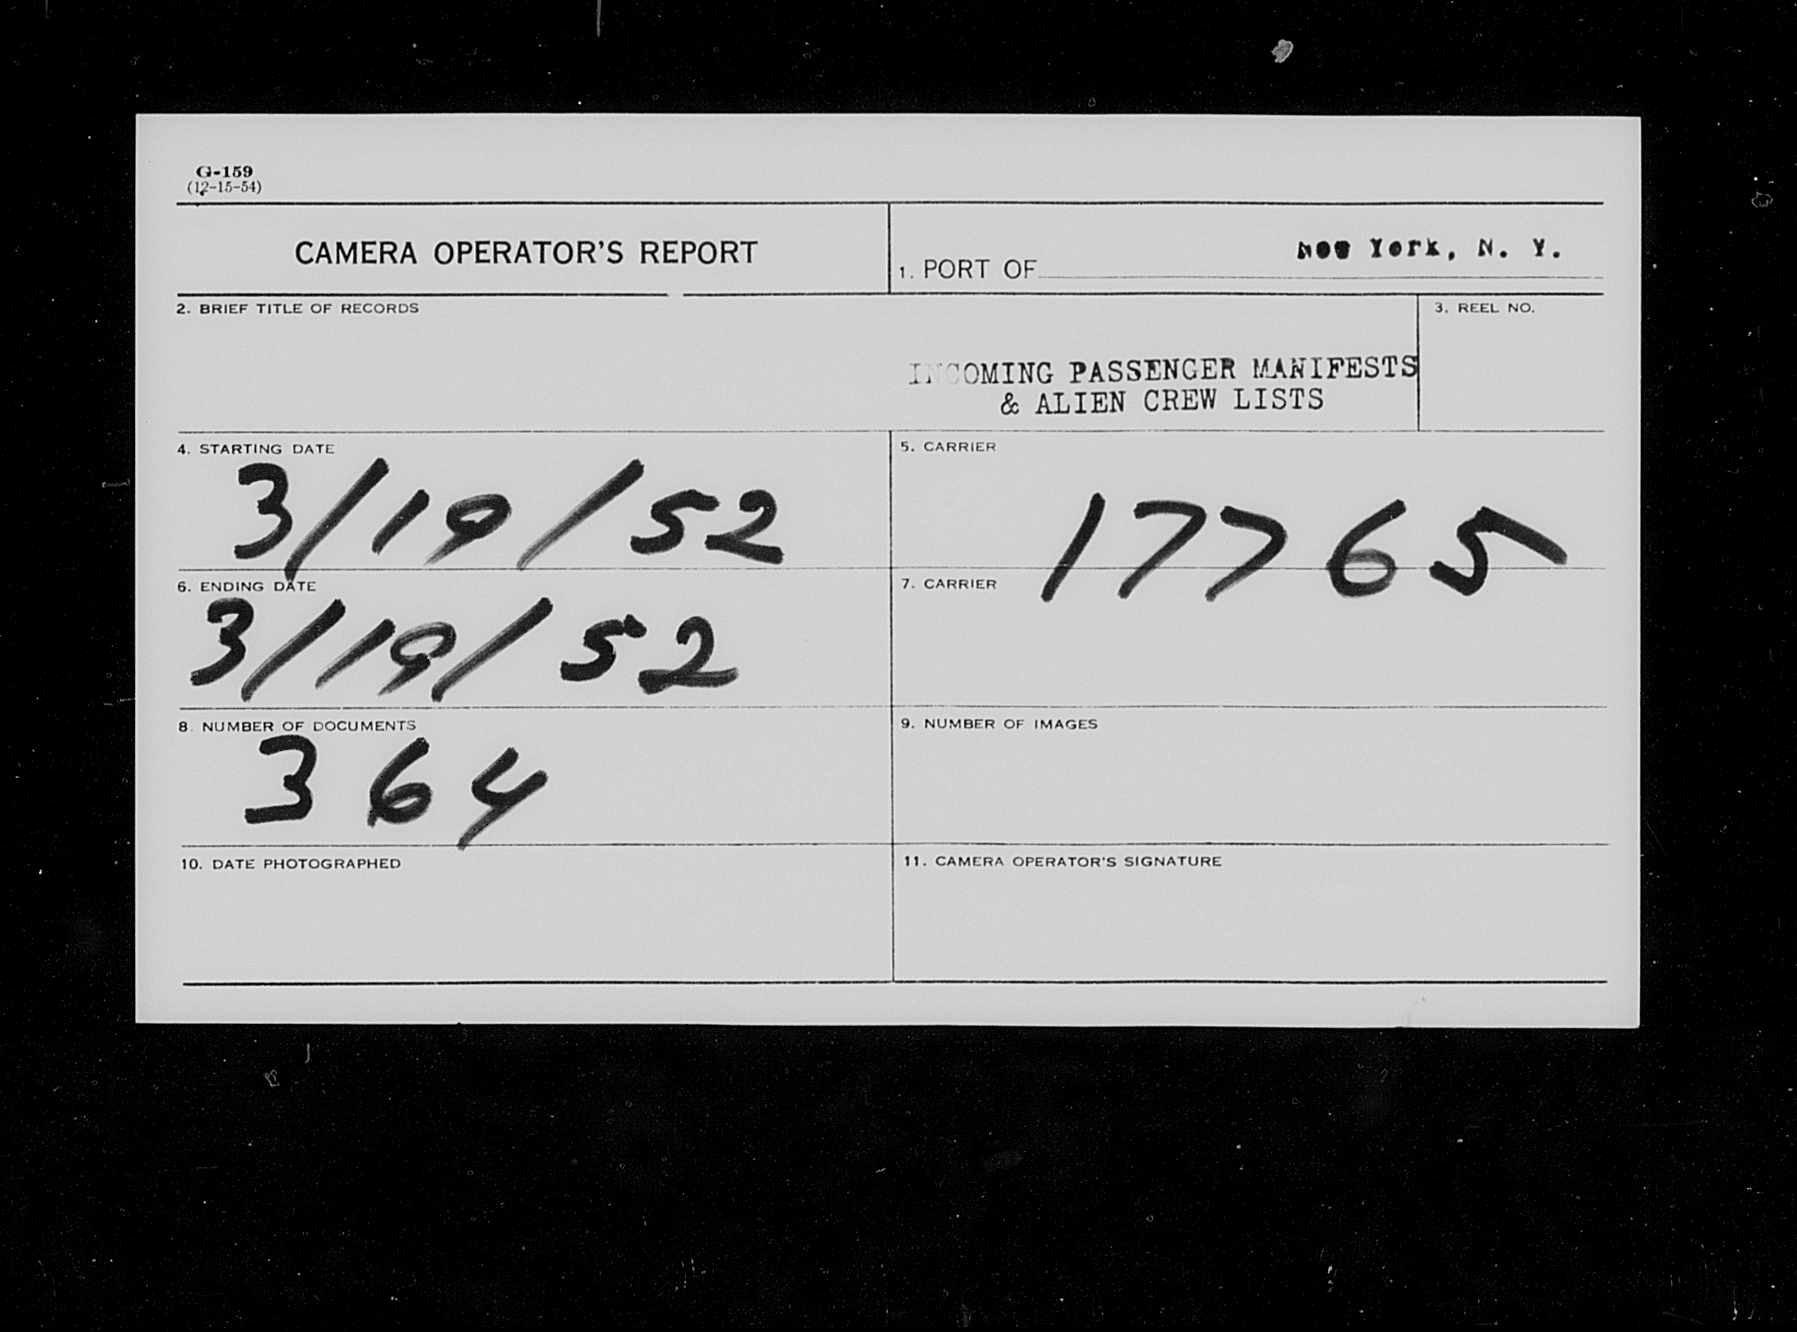 G-159
(12-15-54)
CAMERA OPERATOR'S REPORT
1. PORT OF New York, N. Y.
2. BRIEF TITLE OF RECORDS
INCOMING PASSENGER MANIFESTS
& ALIEN CREW LISTS
3. REEL NO.
4. STARTING DATE
3/19/52
5. CARRIER
17765
6. ENDING DATE
3/19/52
7. CARRIER
8. NUMBER OF DOCUMENTS
364
9. NUMBER OF IMAGES
10. DATE PHOTOGRAPHED
11. CAMERA OPERATOR'S SIGNATURE